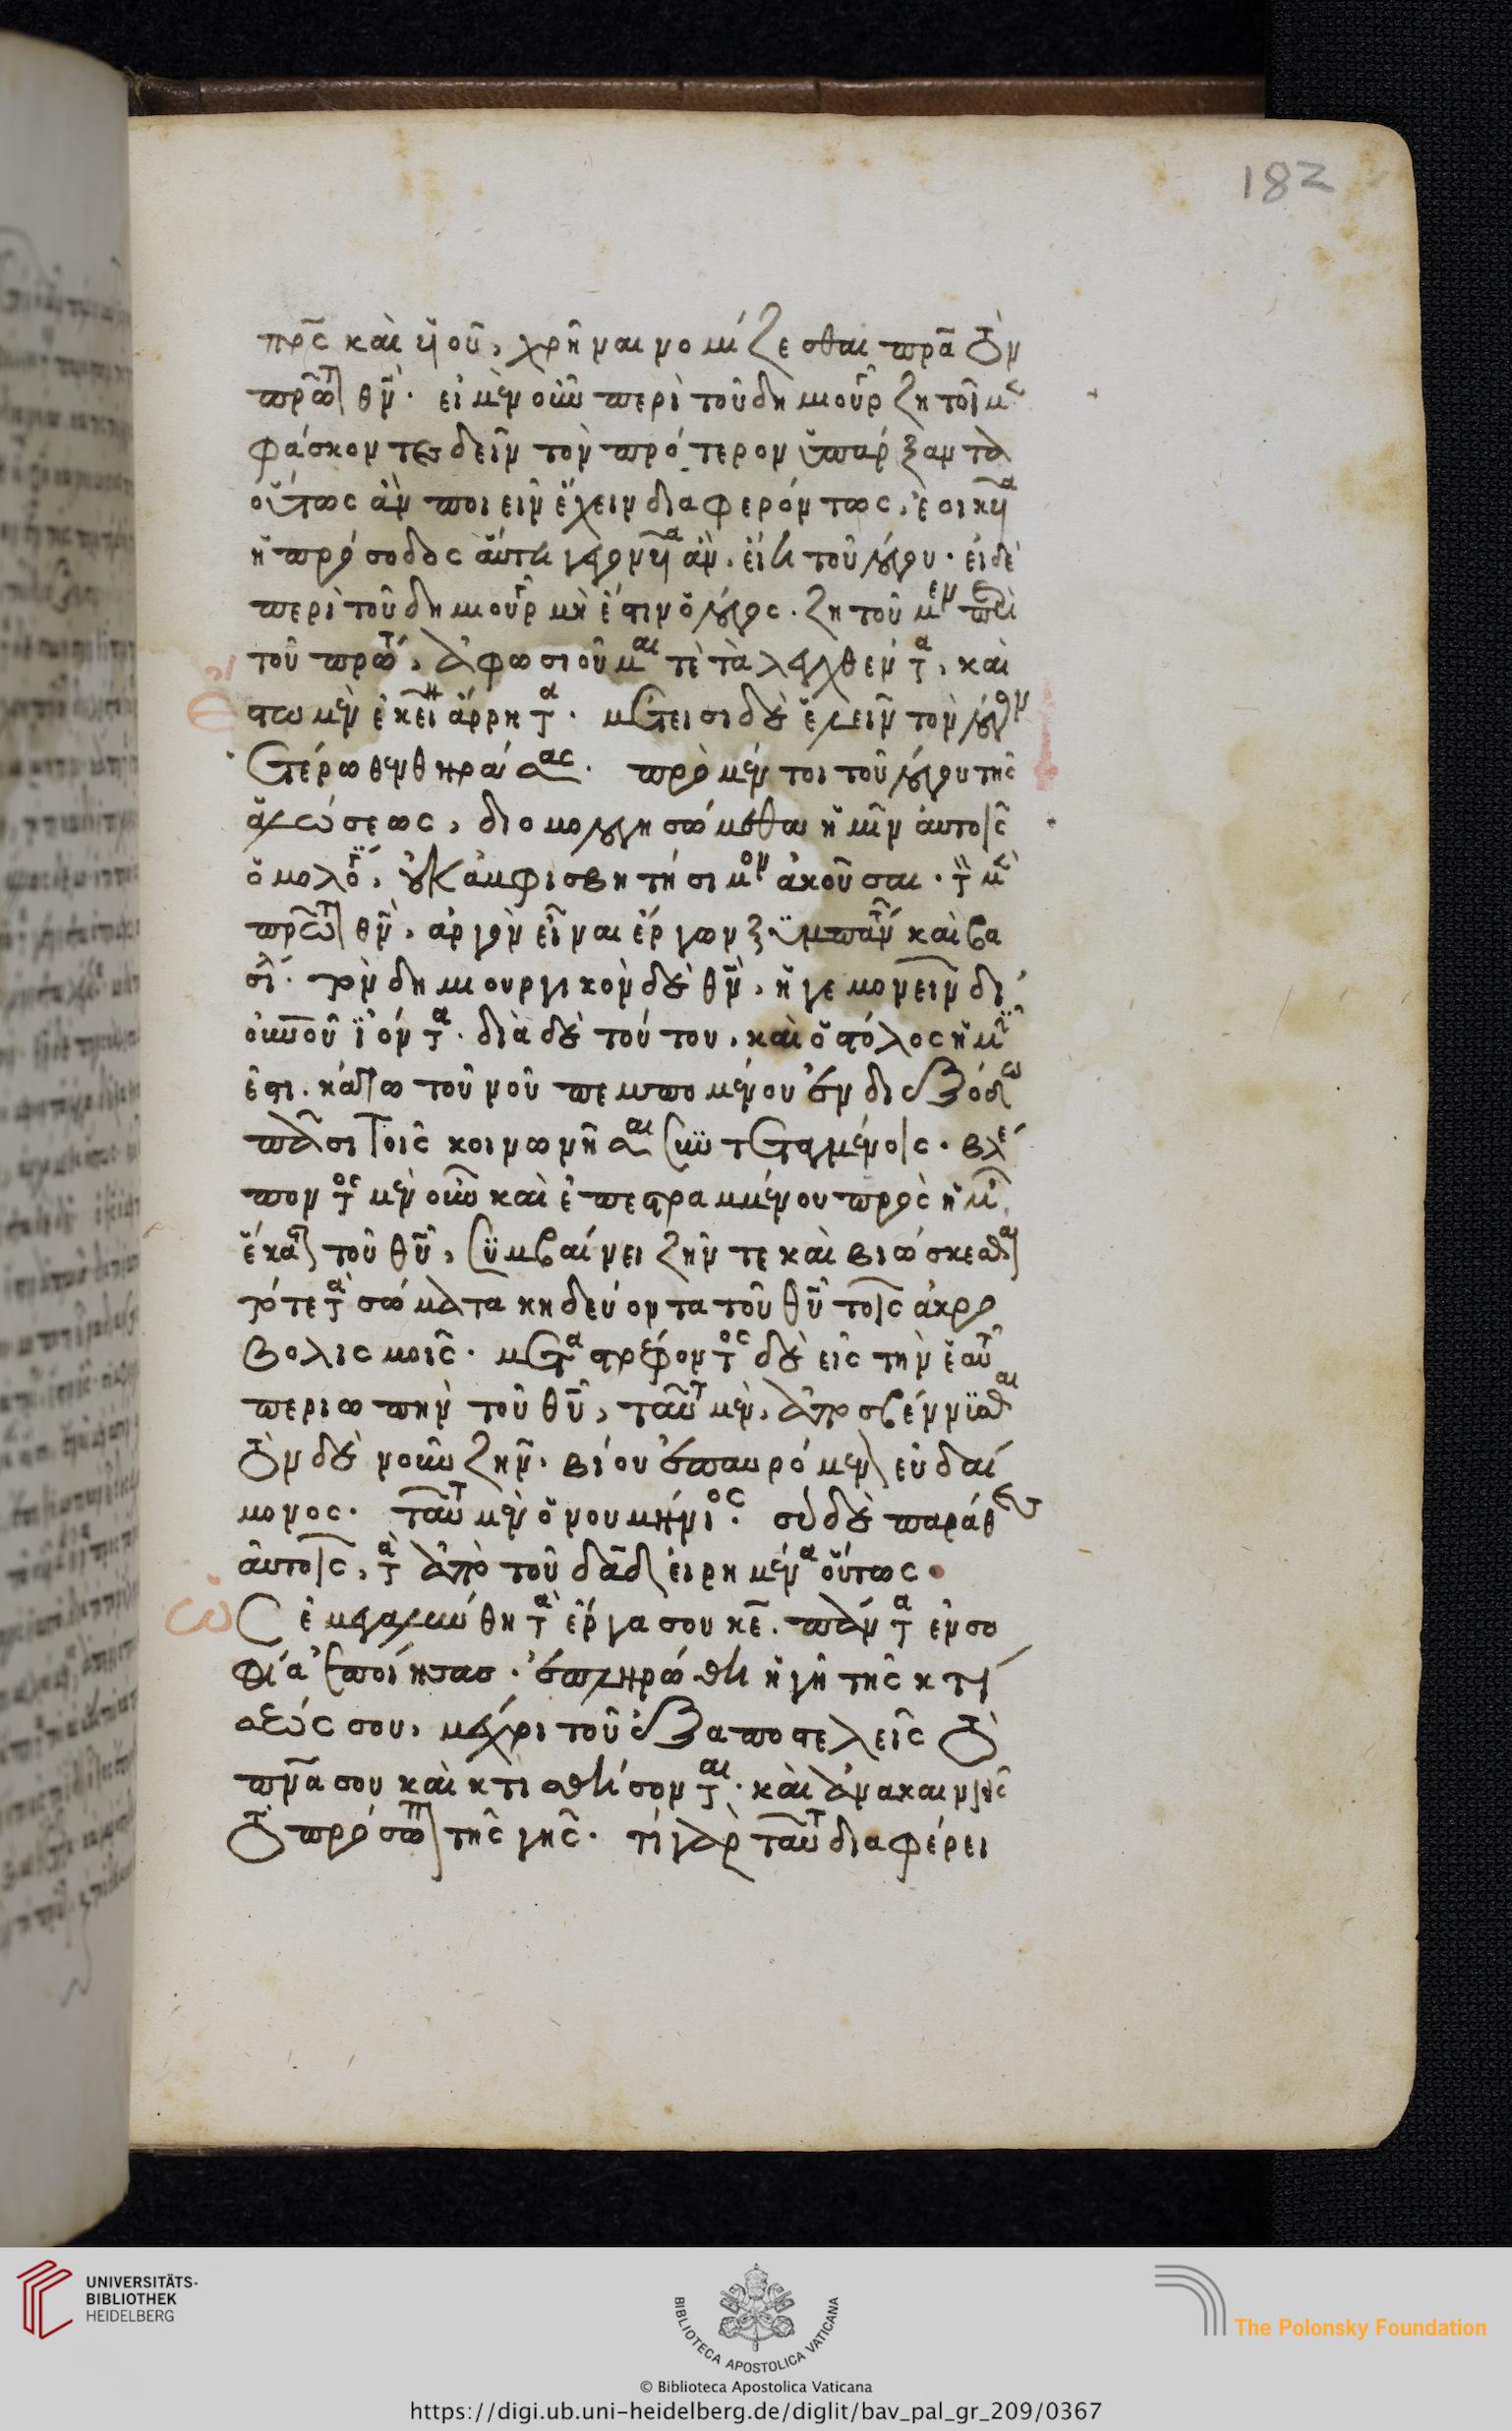 182
πρ̅ς καὶ υἱοῦ, χρῆναι νομίζεσθαι πρ̅α τὸν
πρῶτ θν̅. εἰ μὲν οὖν περὶ τοῦ δημιουργ ζητοῖμ
φάσκοντες δεῖν τὸν πρότερον ὑπάρξαντα
οὕτως ἂν ποιεῖν ἔχειν διαφερόντως, ἐοικυῖα
ἡ πρόσοδος αὕτη γεγονυῖα ἂν εἴη τοῦ λόγου. εἰ δὲ
περὶ τοῦ δημιουργ μή ἐστιν ὁ λόγος. ζητοῦμεν δὲ περὶ
τοῦ πρώτ, ἀφωσιοῦμαι τὲ τὰ λεχθέντα, καὶ
ἔστω μὲν ἐκείνη ἄρρητα. μέτειμι δὲ ἑλεῖν τὸν λόγον
ἑτέρωθεν θηράσας. πρὸ μέντοι τοῦ λόγου τῆς
ἁλώσεως, διομολογησώμεθα ἡμῖν αὐτοῖς
ὁμολογ, οὐκ ἀμφισβητήσιμον ἀκοῦσαι. τὸν μὲν
πρῶτ θν̅, ἀργὸν εἶναι ἔργων ξυμπάντ καὶ βα
σιλ. τὸν δημιουργικὸν δὲ θν̅, ἡγεμονεῖν δι
οὐνοῦ ἰόντα. διὰ δὲ τούτου, καὶ ὁ στόλος ἡμῖν
ἐστι. κάτω τοῦ νοῦ πεμπομένου ἐν διεξόδω
πᾶσι τοῖς κοινωνῆσαι συντεταγμένοις. βλέ
ποντος μὲν οὖν καὶ ἐπεστραμμένου πρὸς ἡμ
ἕκαστ τοῦ θυ̅, συμβαίνει ζῆν τε καὶ βιώσκεσθαι
τότε τὰ σώματα κηδεύοντα τοῦ θυ̅ τοῖς ἀκρο
βολισμοῖς. μεταστρέφοντος δὲ εἰς τὴν ἑαυτ
περιωπὴν τοῦ θυ̅, ταῦτ μὲν, ἀποσβέννυσθαι
τὸν δὲ νοῦν ζῆν. βίου ἐπαυρόμεν εὐδαί
μονος. ταῦτ μὲν ὁ νουμήνιος. σὺ δὲ παράθ
αὐτοῖς, τὰ ἀπὸ τοῦ δαδ εἰρημένα οὕτως.
ὡς ἐμεγαλύνθη τὰ ἔργα σου κε̅. πάντα ἐν σο
φίᾳ ἐποίησας. ἐπληρώθη ἡ γῆ τῆς κτί
σεώς σου, μέχρι τοῦ ἐξαποστελεῖς τὸ
πν̅α σου καὶ κτισθήσονται. καὶ ἀνακαινιεῖς
τὸ πρόσωπ τῆς γῆς. τί γὰρ ταῦτ διαφέρει
UNIVERSITÄTS-
BIBLIOTHEK
HEIDELBERG
BIBLIOTECA APOSTOLICA VATICANA
The Polonsky Foundation
© Biblioteca Apostolica Vaticana
https://digi.ub.uni-heidelberg.de/diglit/bav_pal_gr_209/0367